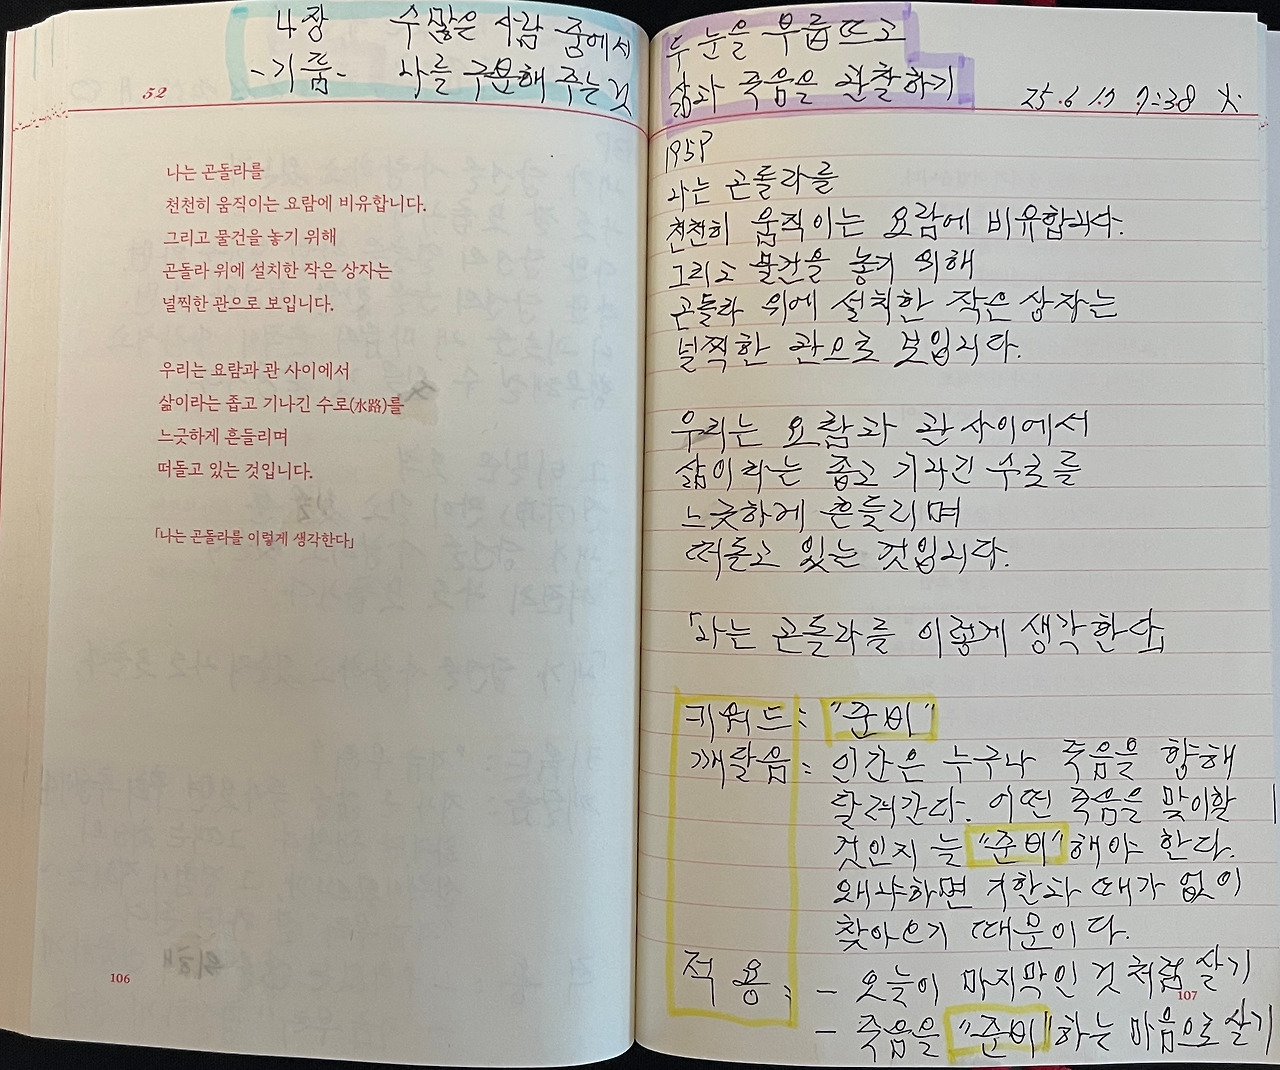 4장 수많은 사람 중에서
-기쁨- 나를 구분해 주는 것
52
나는 곤돌라를
천천히 움직이는 요람에 비유합니다.
그리고 물건을 놓기 위해
곤돌라 위에 설치한 작은 상자는
널찍한 관으로 보입니다.
우리는 요람과 관 사이에서
삶이라는 좁고 기나긴 수로(水路)를
느긋하게 흔들리며
떠돌고 있는 것입니다.
「나는 곤돌라를 이렇게 생각한다」
106
두 눈을 부릅뜨고
삶과 죽음을 관찰하기
25.6.17 7:38
195P
나는 곤돌라를
천천히 움직이는 요람에 비유합니다.
그리고 물건을 놓기 위해
곤돌라 위에 설치한 작은 상자는
널찍한 관으로 보입니다.
우리는 요람과 관 사이에서
삶이라는 좁고 기나긴 수로를
느긋하게 흔들리며
떠돌고 있는 것입니다.
「나는 곤돌라를 이렇게 생각한다」
키워드: "준비"
깨달음: 인간은 누구나 죽음을 향해
달려간다. 어떤 죽음을 맞이할
것인지 는 "준비"해야 한다.
왜냐하면 기한과 때가 없이
찾아오기 때문이다.
적용: - 오늘이 마지막인 것 처럼 살기
107
- 죽음을 "준비"하는 마음으로 살기